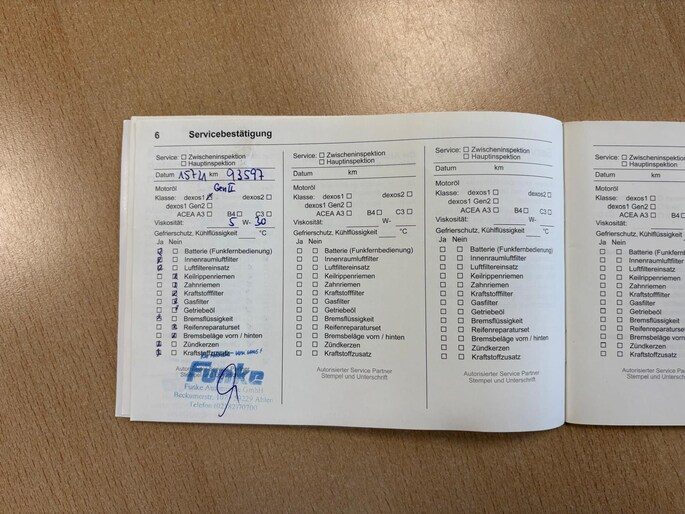 6 Servicebestätigung
Service: Zwischeninspektion
Hauptinspektion
Datum 15.7.21 km 93597
Motoröl Gen II
Klasse: dexos1 dexos2
dexos1 Gen2
ACEA A3 B4 C3
Viskosität: 5 W- 30
Gefrierschutz, Kühlflüssigkeit °C
Ja Nein
Batterie (Funkfernbedienung)
Innenraumluftfilter
Luftfiltereinsatz
Keilrippenriemen
Zahnriemen
Kraftstofffilter
Gasfilter
Getriebeöl
Bremsflüssigkeit
Reifenreparaturset
Bremsbeläge vorn / hinten
Zündkerzen
Kraftstoffzusatz
Funke
Service: Zwischeninspektion
Hauptinspektion
Datum km
Motoröl
Klasse: dexos1 dexos2
dexos1 Gen2
ACEA A3 B4 C3
Viskosität: W-
Gefrierschutz, Kühlflüssigkeit °C
Ja Nein
Batterie (Funkfernbedienung)
Innenraumluftfilter
Luftfiltereinsatz
Keilrippenriemen
Zahnriemen
Kraftstofffilter
Gasfilter
Getriebeöl
Bremsflüssigkeit
Reifenreparaturset
Bremsbeläge vorn / hinten
Zündkerzen
Kraftstoffzusatz
Autorisierter Service Partner
Stempel und Unterschrift
Service: Zwischeninspektion
Hauptinspektion
Datum km
Motoröl
Klasse: dexos1 dexos2
dexos1 Gen2
ACEA A3 B4 C3
Viskosität: W-
Gefrierschutz, Kühlflüssigkeit °C
Ja Nein
Batterie (Funkfernbedienung)
Innenraumluftfilter
Luftfiltereinsatz
Keilrippenriemen
Zahnriemen
Kraftstofffilter
Gasfilter
Getriebeöl
Bremsflüssigkeit
Reifenreparaturset
Bremsbeläge vorn / hinten
Zündkerzen
Kraftstoffzusatz
Autorisierter Service Partner
Stempel und Unterschrift
Service:
Datum
Motoröl
Klasse: dexos1
dexos1 Gen2
ACEA A3
Viskosität:
Gefrierschutz,
Ja Nein